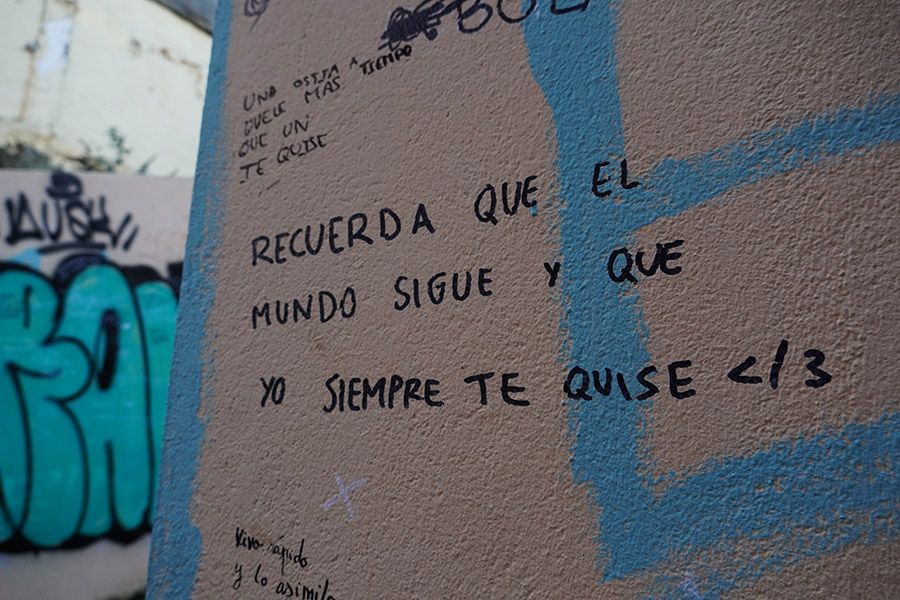 UNA OSTIA A TIEMPO
DUELE MAS
QUE UN
TE QUISE
RECUERDA QUE EL
MUNDO SIGUE Y QUE
YO SIEMPRE TE QUISE </3
Vivo rápido
y lo asimilo